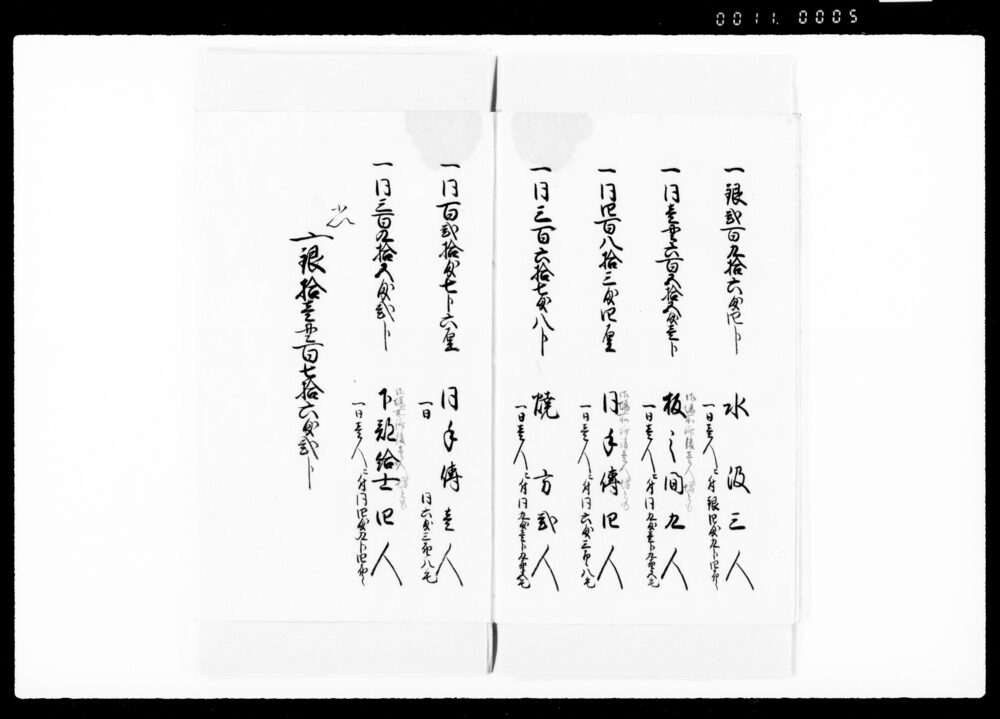 0011. 0005
一銀弐百九拾六匁四分 水汲三人
一日壱人ニ付銀四匁九分四厘
一同壱貫六百五拾五匁壱分 板之間九人
一日壱人ニ付同九匁壱分九厘五毛
一同四百八拾三匁四厘 同手傳四人
一日壱人ニ付同六匁三厘八毛
一同三百六拾七匁八分 焼方弐人
一日壱人ニ付同九匁壱分九厘五毛
一同百弐拾匁七分六厘 同手傳壱人
一日 同六匁三厘八毛
一同三百九拾五匁弐分 下部給士四人
一日壱人ニ付同四匁九分四厘
銀拾壱貫百七拾六匁弐分